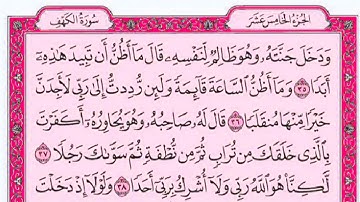 الجُزْءُ الخَامِسَ عَشَرَ سُورَةُ الكَهْفِ
وَدَخَلَ جَنَّتَهُۥ وَهُوَ ظَالِمٌ لِّنَفْسِهِۦ قَالَ مَآ أَظُنُّ أَن تَبِيدَ هَٰذِهِۦٓ
أَبَدًا ٣٥ وَمَآ أَظُنُّ ٱلسَّاعَةَ قَآئِمَةً وَلَئِن رُّدِدتُّ إِلَىٰ رَبِّى لَأَجِدَنَّ
خَيْرًا مِّنْهَا مُنقَلَبًا ٣٦ قَالَ لَهُۥ صَاحِبُهُۥ وَهُوَ يُحَاوِرُهُۥٓ أَكَفَرْتَ
بِٱلَّذِى خَلَقَكَ مِن تُرَابٍ ثُمَّ مِن نُّطْفَةٍ ثُمَّ سَوَّىٰكَ رَجُلًا
٣٧ لَّٰكِنَّا۠ هُوَ ٱللَّهُ رَبِّى وَلَآ أُشْرِكُ بِرَبِّىٓ أَحَدًا ٣٨ وَلَوْلَآ إِذْ دَخَلْتَ